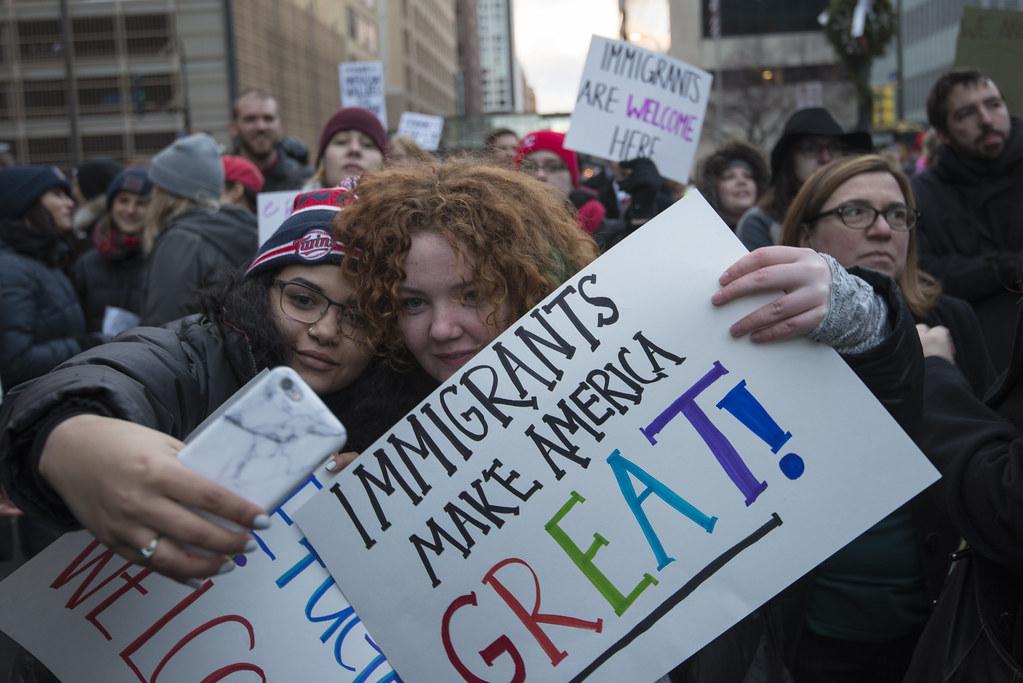 IMMIGRANTS
ARE WELCOME
HERE
WE
Twins
IMMIGRANTS
MAKE AMERICA
GREAT!